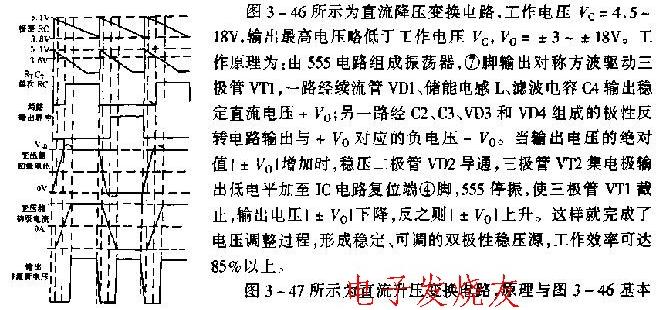 5.1V
3.8V
5.1V
3.8V
0V
0A
图 3-46 所示为直流降压变换电路,工作电压 VC = 4.5~
18V,输出最高电压略低于工作电压 VC, VO = ±3~±18V。工
作原理为:由 555 电路组成振荡器,⑦脚输出对称方波驱动三
极管 VT1,一路经续流管 VD1、储能电感 L、滤波电容 C4 输出稳
定直流电压 + VO;另一路经 C2、C3、VD3 和 VD4 组成的极性反
转电路输出与 + VO 对应的负电压 - VO。当输出电压的绝对
值|± VO|增加时,稳压二极管 VD2 导通,三极管 VT2 集电极输
出低电平加至 IC 电路复位端④脚,555 停振,使三极管 VT1 截
止,输出电压|± VO|下降,反之则|± VO|上升。这样就完成了
电压调整过程,形成稳定、可调的双极性稳压源,工作效率可达
85%以上。
图 3-47 所示为直流升压变换电路,原理与图 3-46 基本
电子发烧友